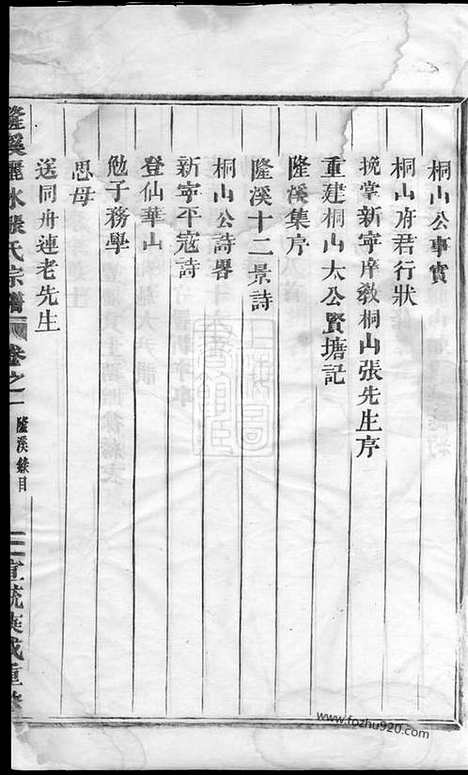 桐山公事實
桐山府君行狀
挽掌新寧庠敎桐山張先生序
重建桐山太公賢塘記
隆溪集序
隆溪十二景詩
桐山公詩畧
新寧平寇詩
登仙華山
勉子務學
思母
送同舟連老先生
隆溪麗水張氏宗譜
卷之一
隆溪錄目
二
宣統庚戌重修
www.fozhu920.com